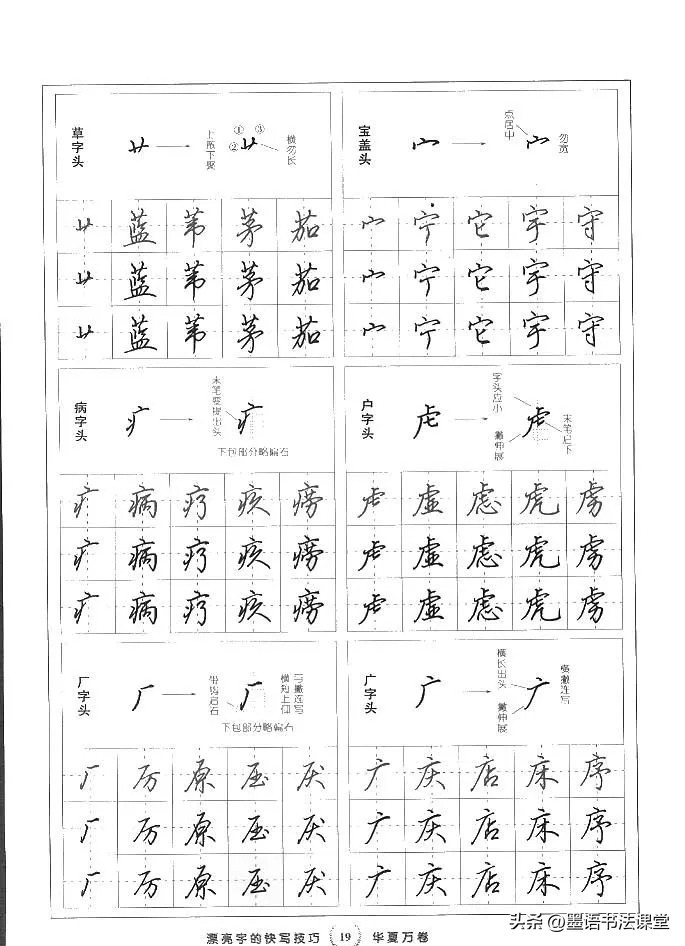 草字头
上散下聚
①
②
③
横勿长
艹 蓝 苇 茅 茄
艹 蓝 苇 茅 茄
艹 蓝 苇 茅 茄
宝盖头
点居中
勿宽
宀 宁 它 宇 守
宀 宁 它 宇 守
宀 宁 它 宇 守
病字头
疒
末笔变提出头
疒
下包部分略偏右
疒 病 疗 疾 痨
疒 病 疗 疾 痨
疒 病 疗 疾 痨
户字头
虍
字头应小
撇伸展
虍
虍 虚 虑 虎 虏
虍 虚 虑 虎 虏
虍 虚 虑 虎 虏
厂字头
厂
厂
与撇连写
横短上仰
下包部分略偏右
厂 厉 原 压 厌
厂 厉 原 压 厌
厂 厉 原 压 厌
广字头
广
横长出头
撇伸展
广
横撇连写
广 庆 店 床 序
广 庆 店 床 序
广 庆 店 床 序
漂亮字的快写技巧 19 华夏万卷
头条 @墨语书法课堂